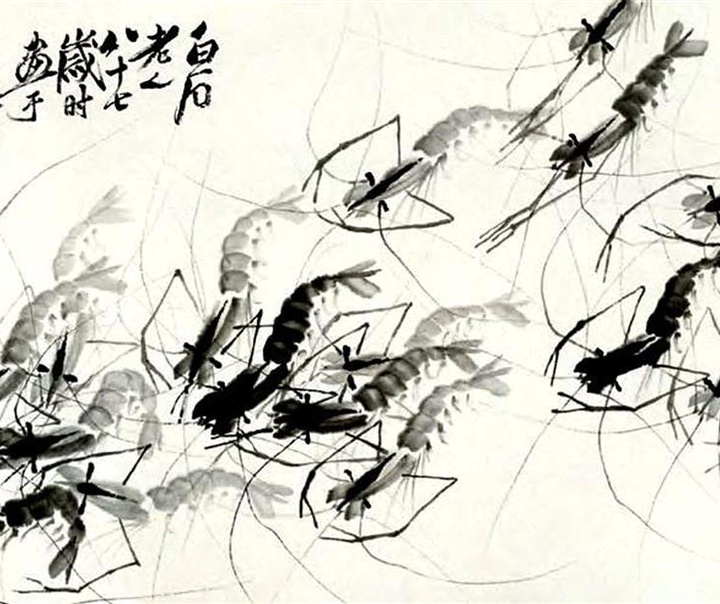 白石
老人
八十七
歲时
畫于